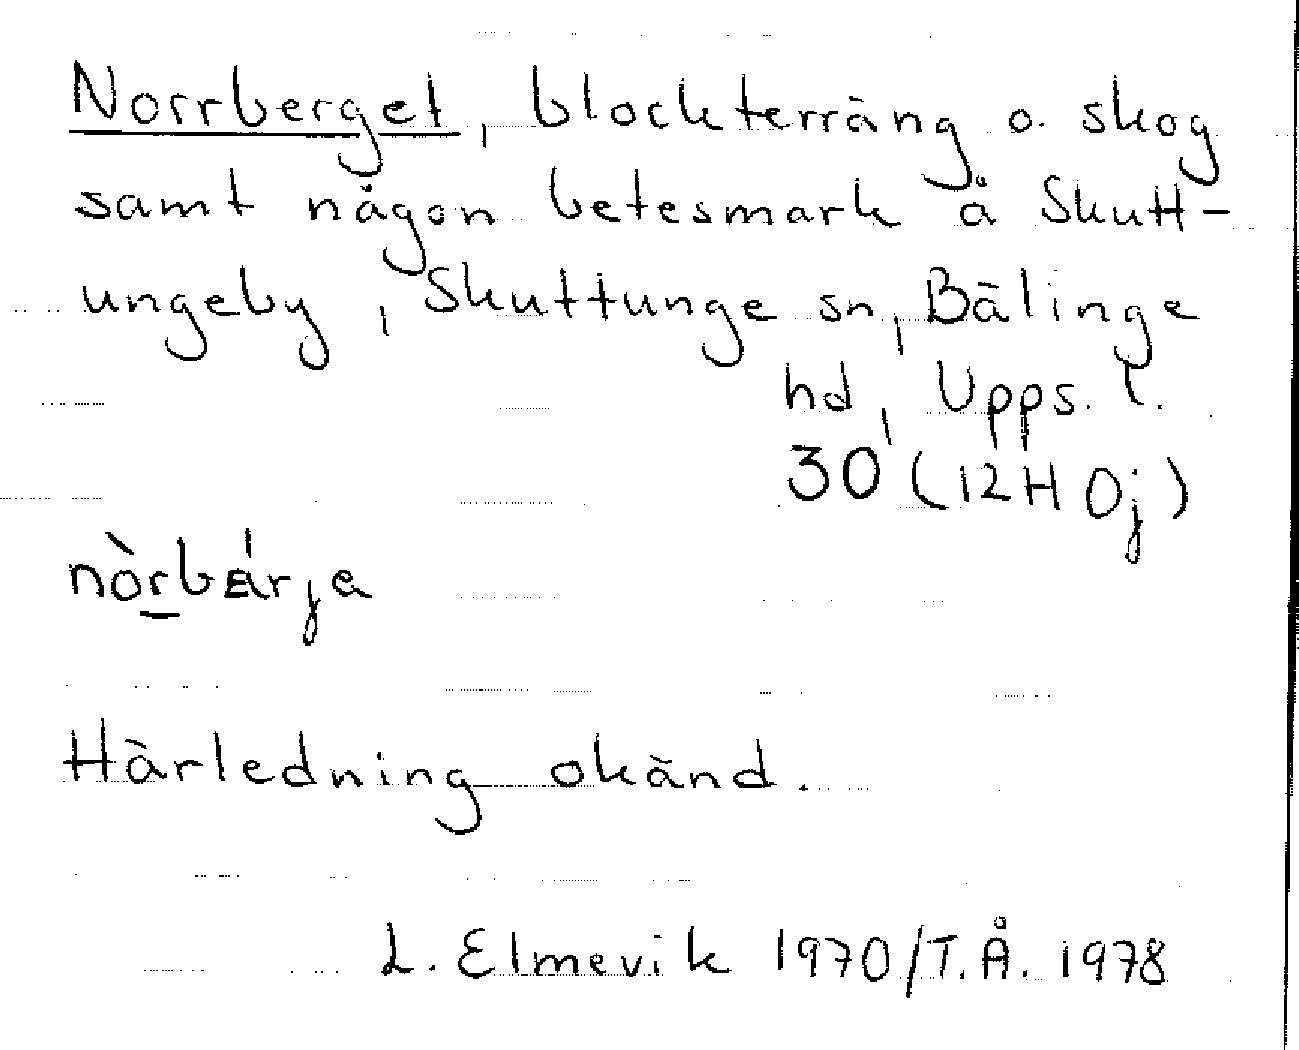 Norrberget, blockterräng o. skog
samt någon betesmark å Skutt-
ungeby, Skuttunge sn, Bälinge
hd, Upps. l.
30 (12H 0j)
nòrbárja
Härledning okänd.
L. Elmevik 1970/T.Å. 1978